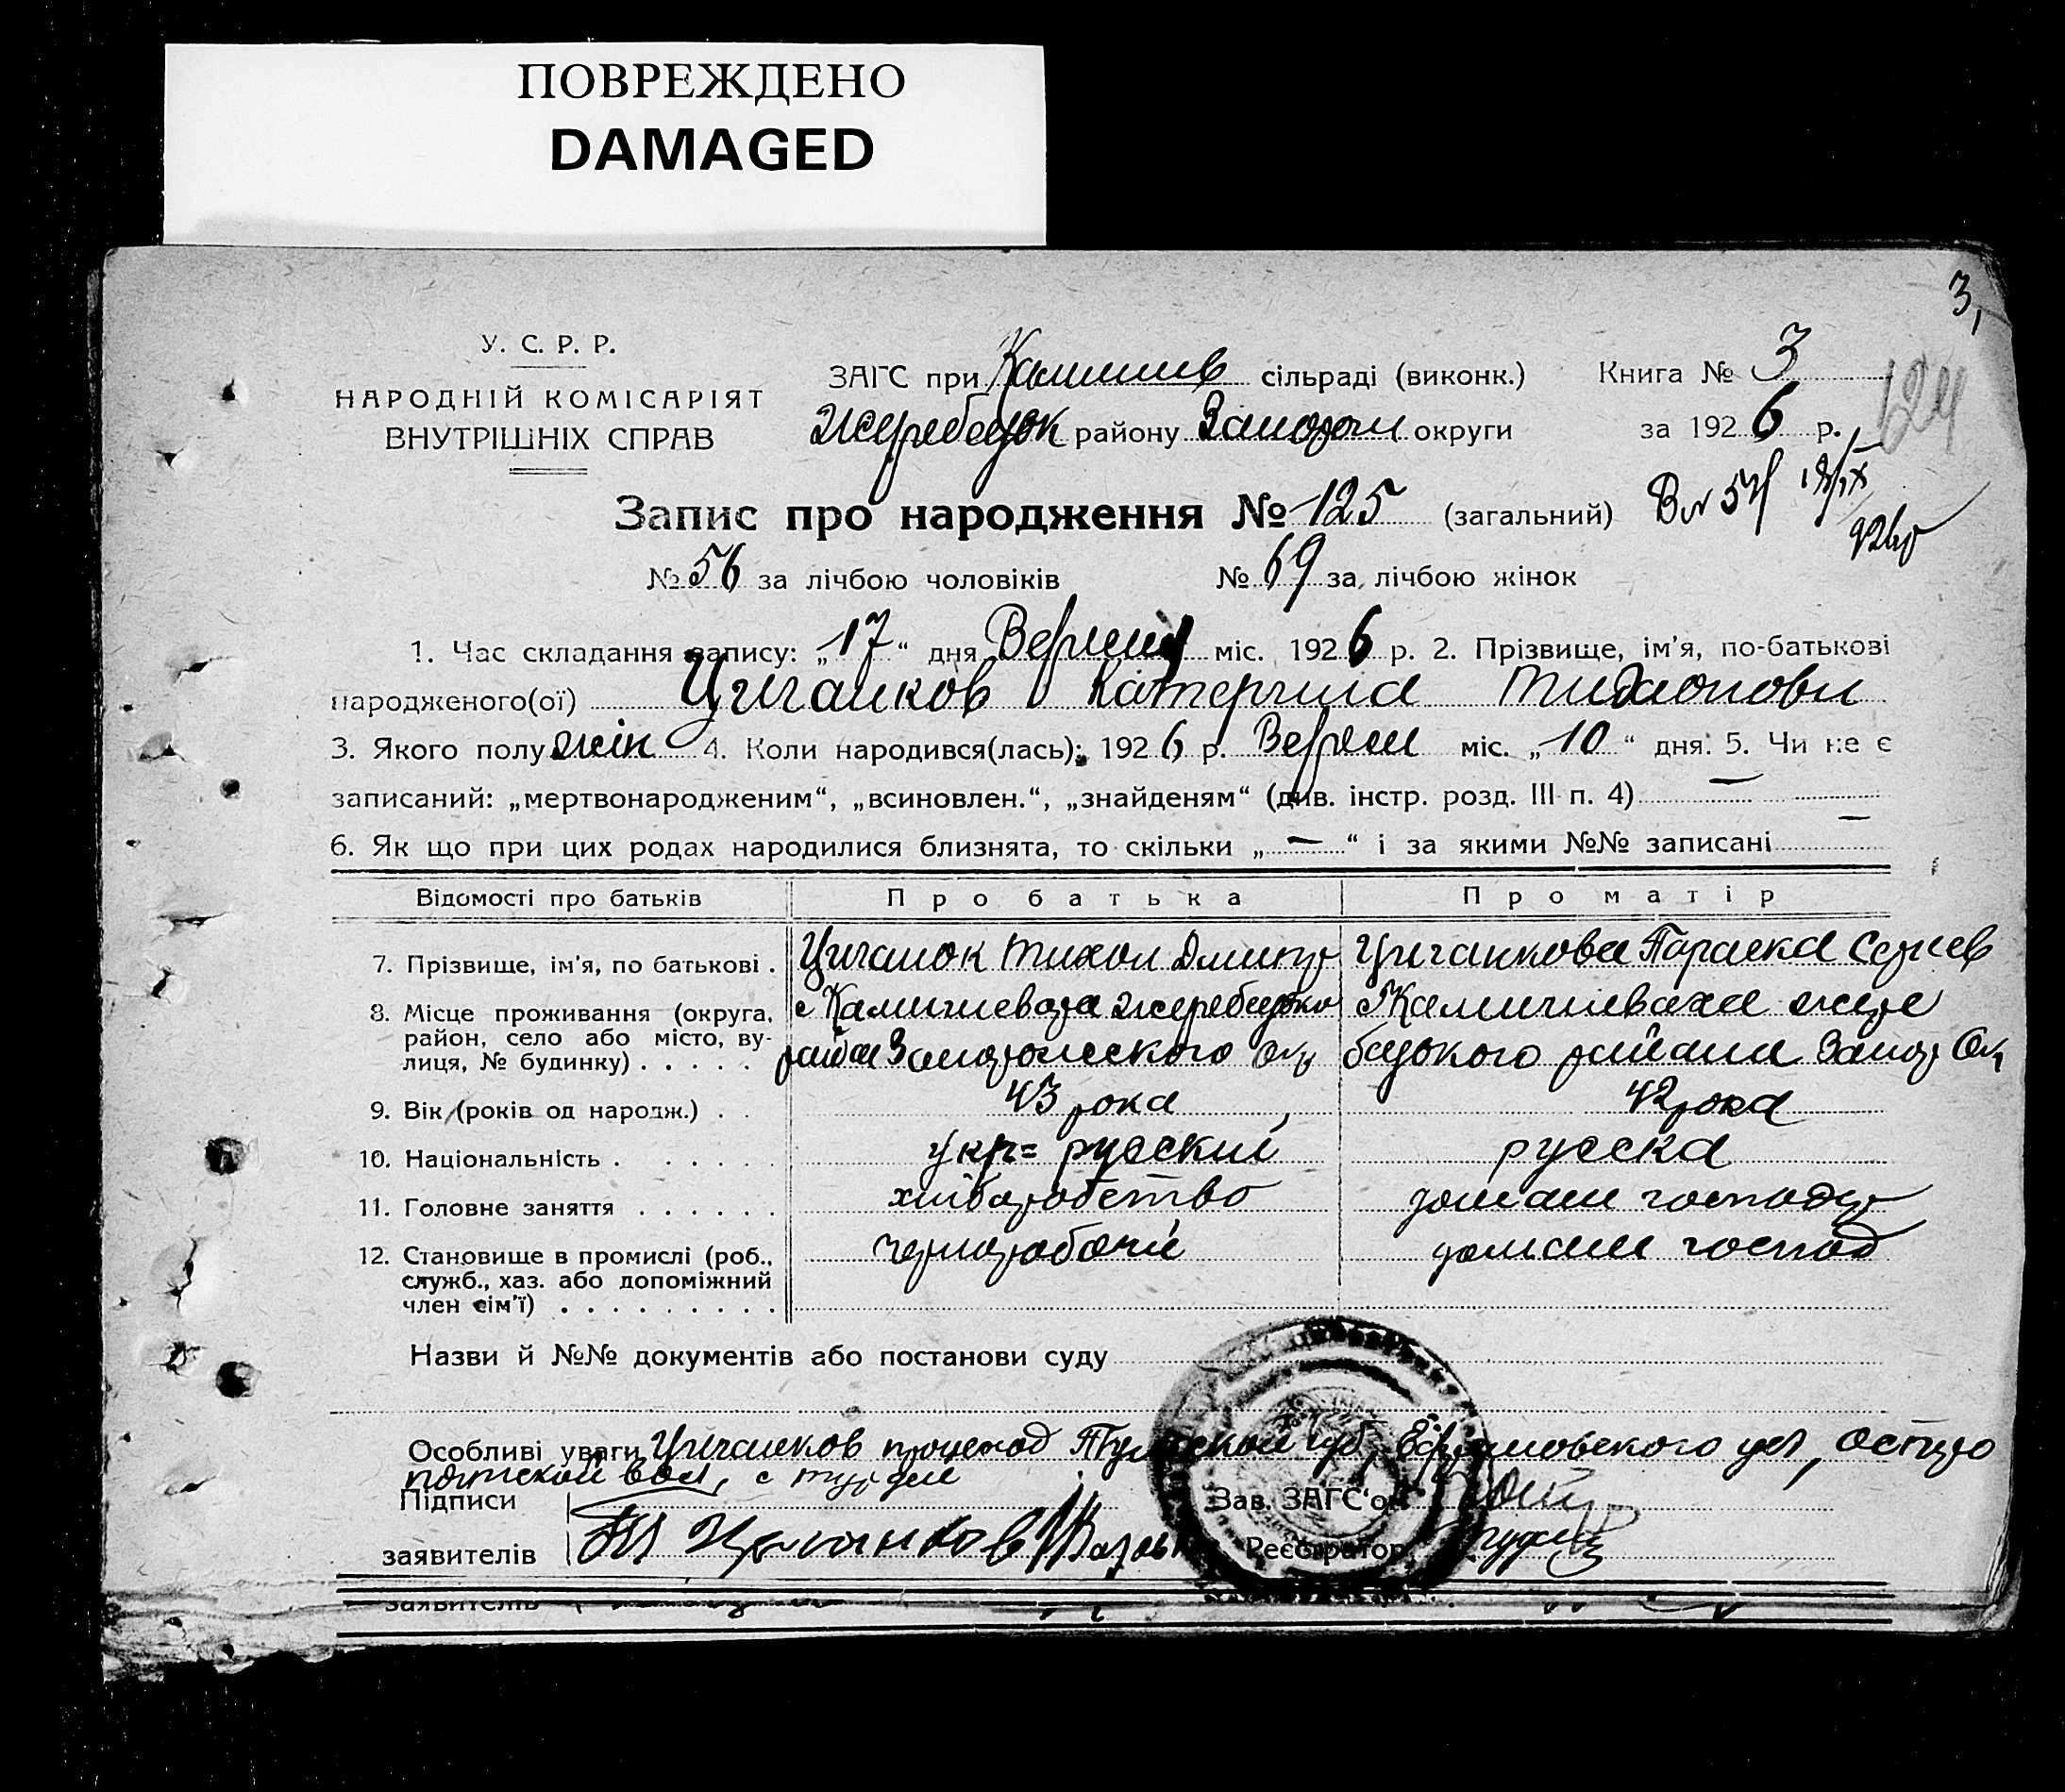 ПОВРЕЖДЕНО
DAMAGED
3,
У. С. Р. Р.
НАРОДНІЙ КОМІСАРІЯТ
ВНУТРІШНІХ СПРАВ
ЗАГС при Камишев сільраді (виконк.)
Жеребецьк району Запорож округи
Книга № 3
за 1926 р.
124
Запис про народження № 125 (загальний)
№ 56 за лічбою чоловіків № 69 за лічбою жінок
1. Час складання запису: „17“ дня Вересня міс. 1926 р. 2. Прізвище, ім'я, по-батькові
народженого(ої) Циганков Катерина Тихоновн
3. Якого полу жін 4. Коли народився(лась): 1926 р. Вересн міс. „10“ дня. 5. Чи не є
записаний: „мертвонародженим“, „всиновлен.“, „знайденям“ (див. інстр. розд. III п. 4) —
6. Як що при цих родах народилися близнята, то скільки „—“ і за якими №№ записані —
Відомості про батьків Про батька Про матір
7. Прізвище, ім'я, по батькові . Циганок Тихон Дмитр Циганкова Параска Сергіев
8. Місце проживання (округа, район, село або місто, вулиця, № будинку) . . . . . с Камишеваха Жеребецько района Запорожского Окр с Камишеваха жеребецького района Запор Окр
9. Вік (років од народж.) . . 43 рока 42 рока
10. Національність . . . . . . укр= русский русска
11. Головне заняття . . . . . . хліборобство домашн господр
12. Становище в промислі (роб., служб., хаз. або допоміжний член сім'ї) . . . . . . . . . чернорабочій домашн господ
Назви й №№ документів або постанови суду
Особливі уваги Циганков происход Тульской губ, Ефремовского уез,
вол, с
Підписи
заявителів Т Цыганков
Зав. ЗАГС'ом
Реєстратор
заявителів